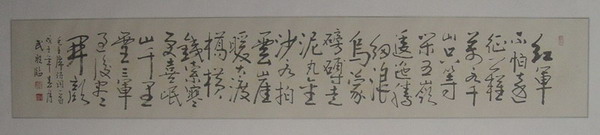 紅軍
不怕遠
征難
萬水千
山只等
閑五嶺
逶迤騰
細浪
烏蒙
磅礴走
泥丸金
沙水拍
雲崖
暖大渡
橋橫
鐵索寒
更喜岷
山千里
雪三軍
過後盡
開顏
毛主席詩詞一首